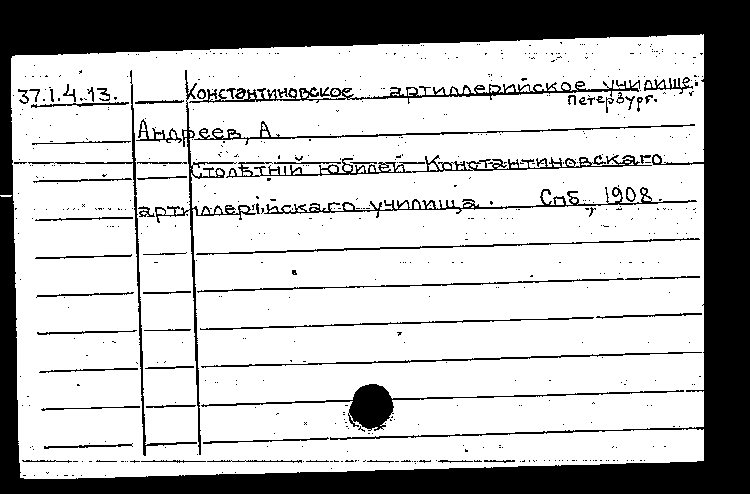 37.1.4.13. Константиновское артиллерийское училище.
Петербург.
Андреев, А.
Столѣтній юбилей Константиновскаго
артиллерійскаго училища. Спб., 1908.